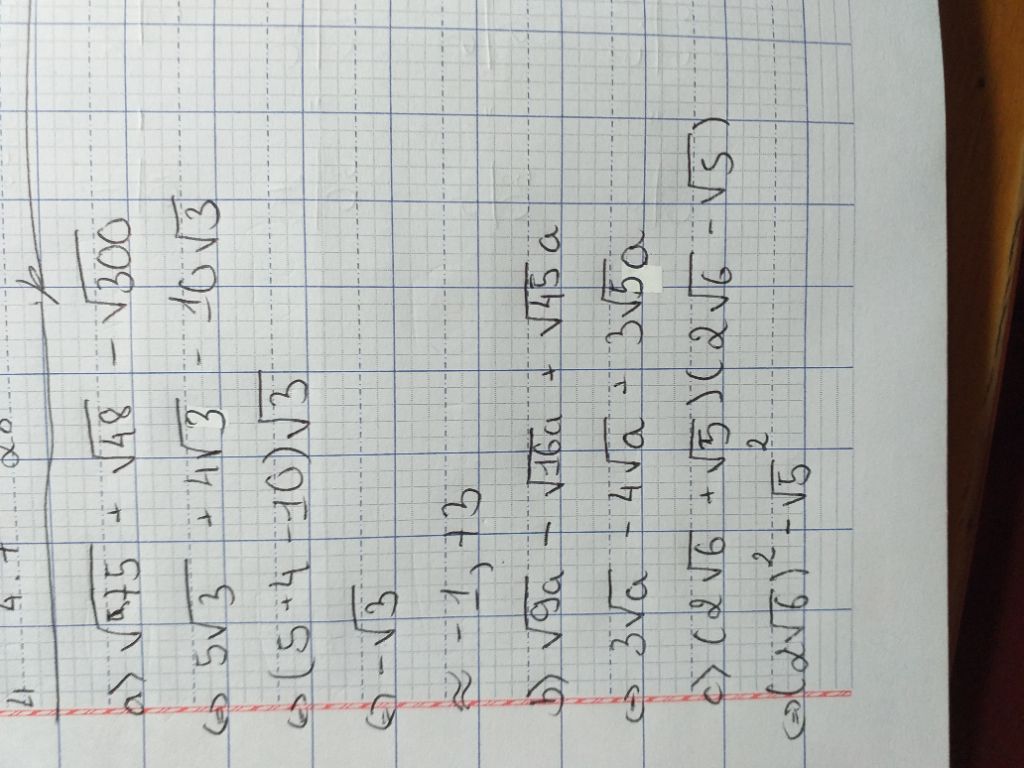 a) √75 + √48 - √300
⇔ 5√3 + 4√3 - 10√3
⇔ (5 + 4 - 10)√3
⇔ -√3
≈ -1,73
b) √9a - √16a + √45a
⇔ 3√a - 4√a + 3√5a
c) (2√6 + √5)(2√6 - √5)
⇔ (2√6)² - √5²